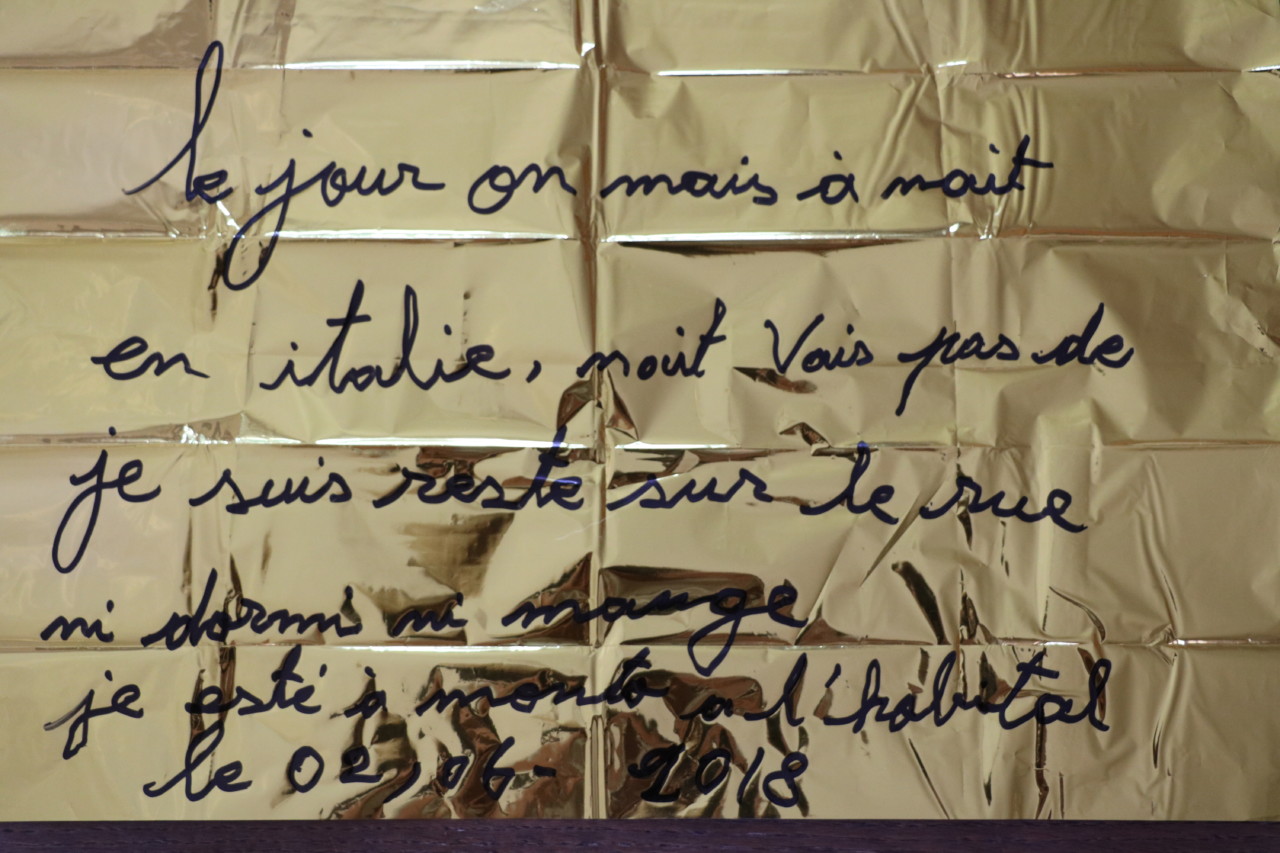 le jour on mais à nait
en italie, nout Vais pas de
je suis resté sur le rue
ni dormi ni mange
je esté à monto a l'hobital
le 02,06- 2018